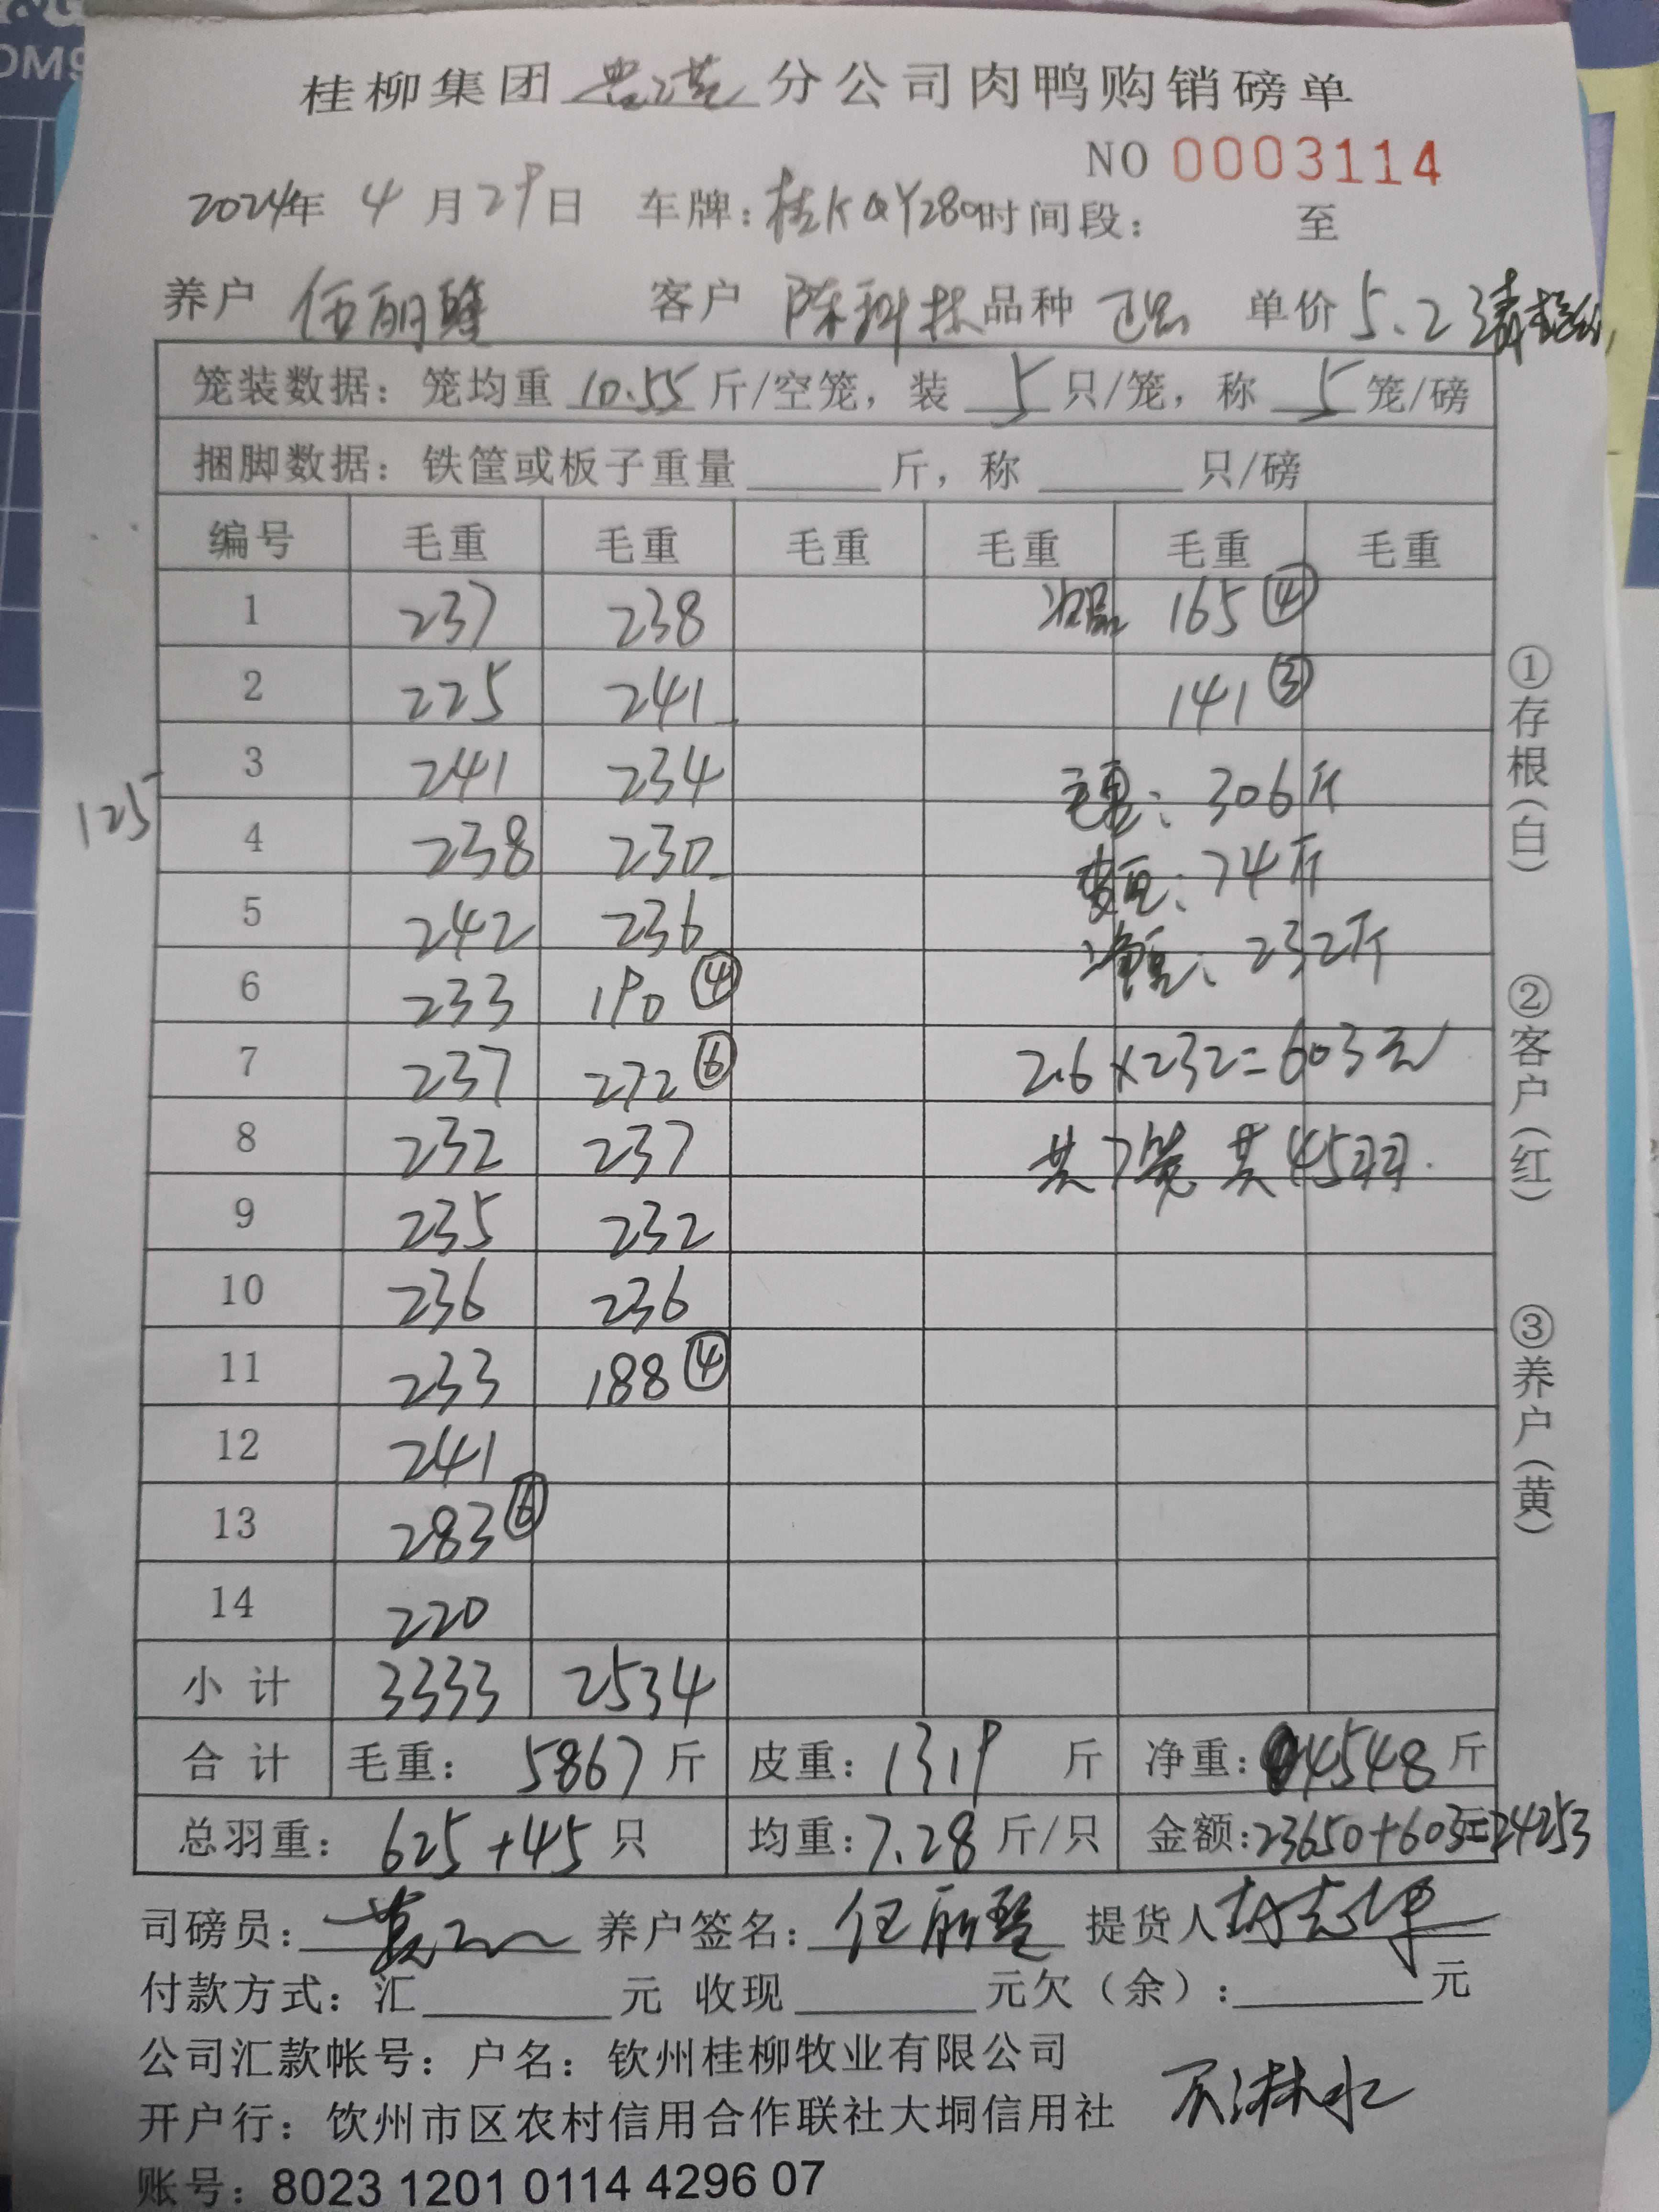 桂柳集团 分公司肉鸭购销磅单
NO 0003114
2024年 4月29日 车牌：桂KQY280 时间段： 至
养户 伍丽 客户 陈科林 品种 单价 5.2
笼装数据：笼均重 10.55 斤/空笼，装 5 只/笼，称 5 笼/磅
捆脚数据：铁筐或板子重量 斤，称 只/磅
编号 毛重 毛重 毛重 毛重 毛重 毛重
1 237 238 次品 165 ④
2 225 241 141 ③
3 241 234 毛重：306斤
125
4 238 230 皮重：74斤
5 242 236 净重：232斤
6 233 190 ④
7 237 272 ⑥ 2.6×232=603元
8 232 237 共7笼 共45羽.
9 235 232
10 236 236
11 233 188 ④
12 241
13 283 ⑥
14 220
小计 3333 2534
合计 毛重：5867斤 皮重：1319 斤 净重：4548斤
总羽重：625+45只 均重：7.28斤/只 金额：23650+603=24253
司磅员： 养户签名：伍丽 提货人
付款方式：汇 元 收现 元欠（余）： 元
公司汇款帐号：户名：钦州桂柳牧业有限公司
开户行：钦州市区农村信用合作联社大垌信用社 不淋水
账号：8023 1201 0114 4296 07
①存根（白）
②客户（红）
③养户（黄）